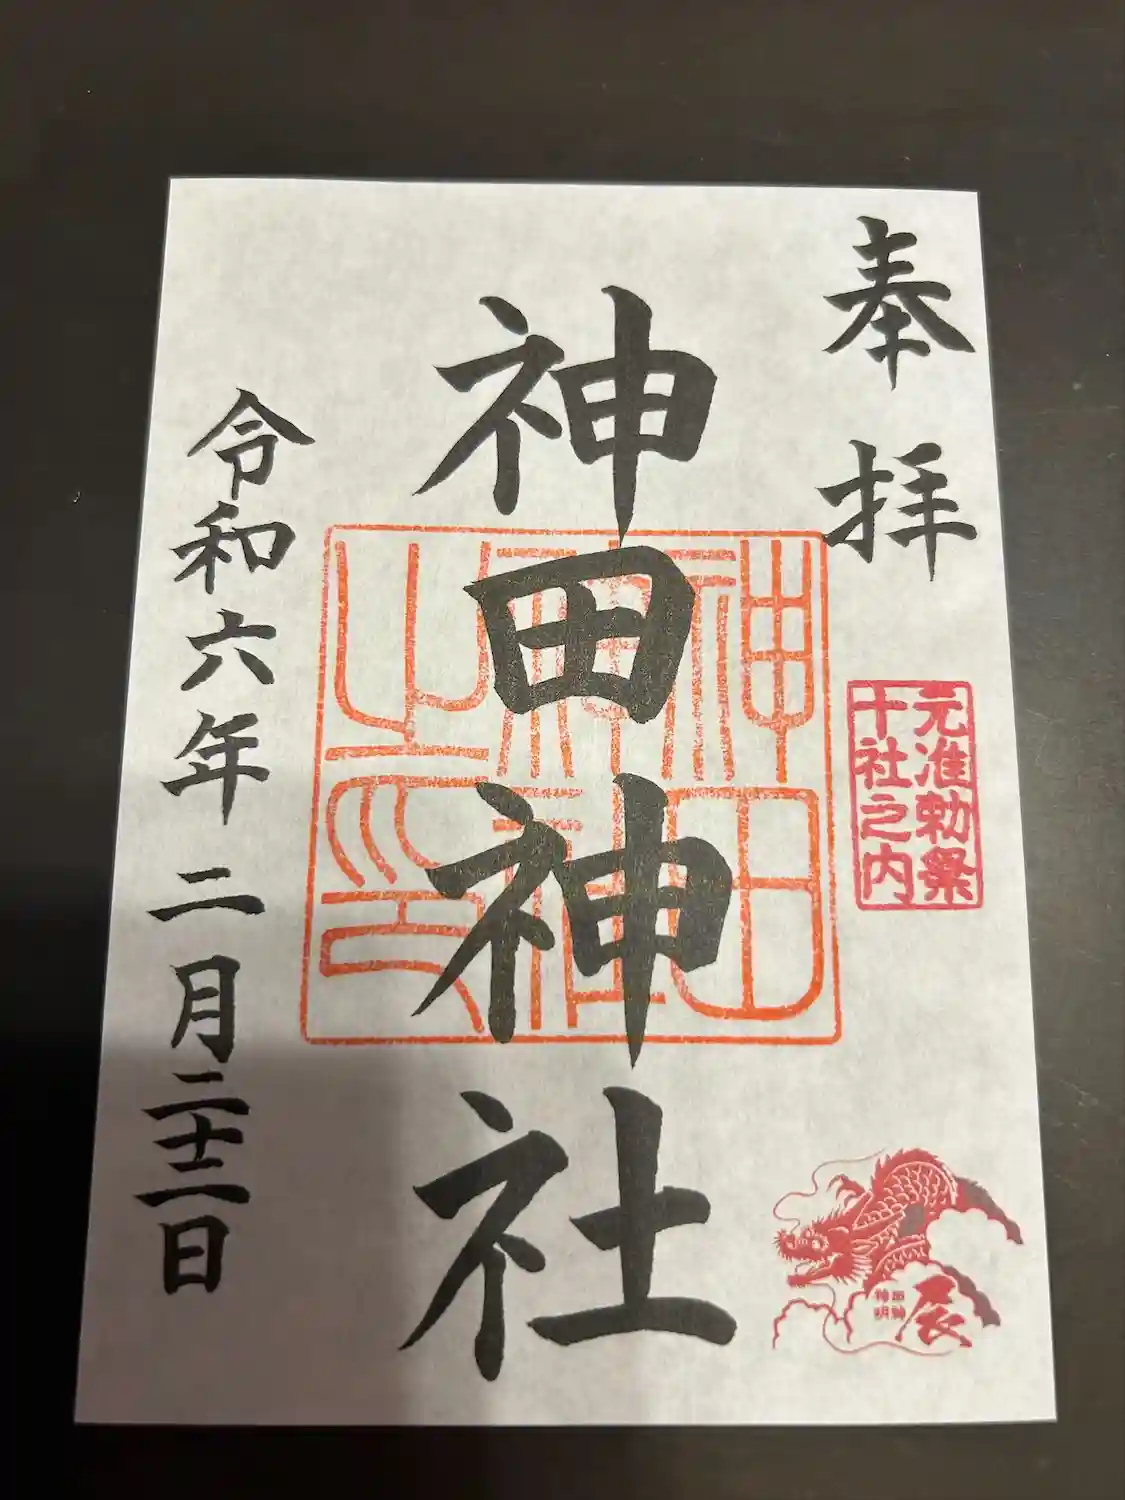 奉拝
元准勅祭
十社之内
神田神社
神田
神社
之印
令和六年二月二十二日
辰
神田
明神